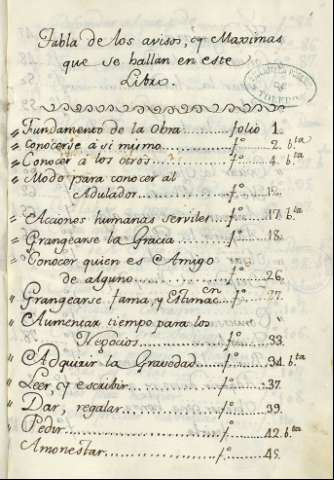 Tabla de los avisos, y Maximas
que se hallan en este
Libro.
" Fundamento de la Obra ...... folio 1.
" Conocerse a si mismo ...... f.º 2. b.ta
" Conocer á los otros ...... f.º 4. b.ta
" Modo para conocer al
Adulador ...... f.º
" Acciones humanas serviles ... f.º 17. b.ta
" Grangearse la Gracia ...... f.º 18.
" Conocer quien es Amigo
de alguno ...... f.º 26.
" Grangearse fama, y Estimac.en f.º 27.
" Aumentar tiempo para los
Negocios ...... f.º 33.
" Adquirir la Gravedad ... f.º 34. b.ta
" Leer, y escribir ...... f.º 37.
" Dar, regalar ...... f.º 39.
" Pedir ...... f.º 42. b.ta
" Amonestar ...... f.º 45.